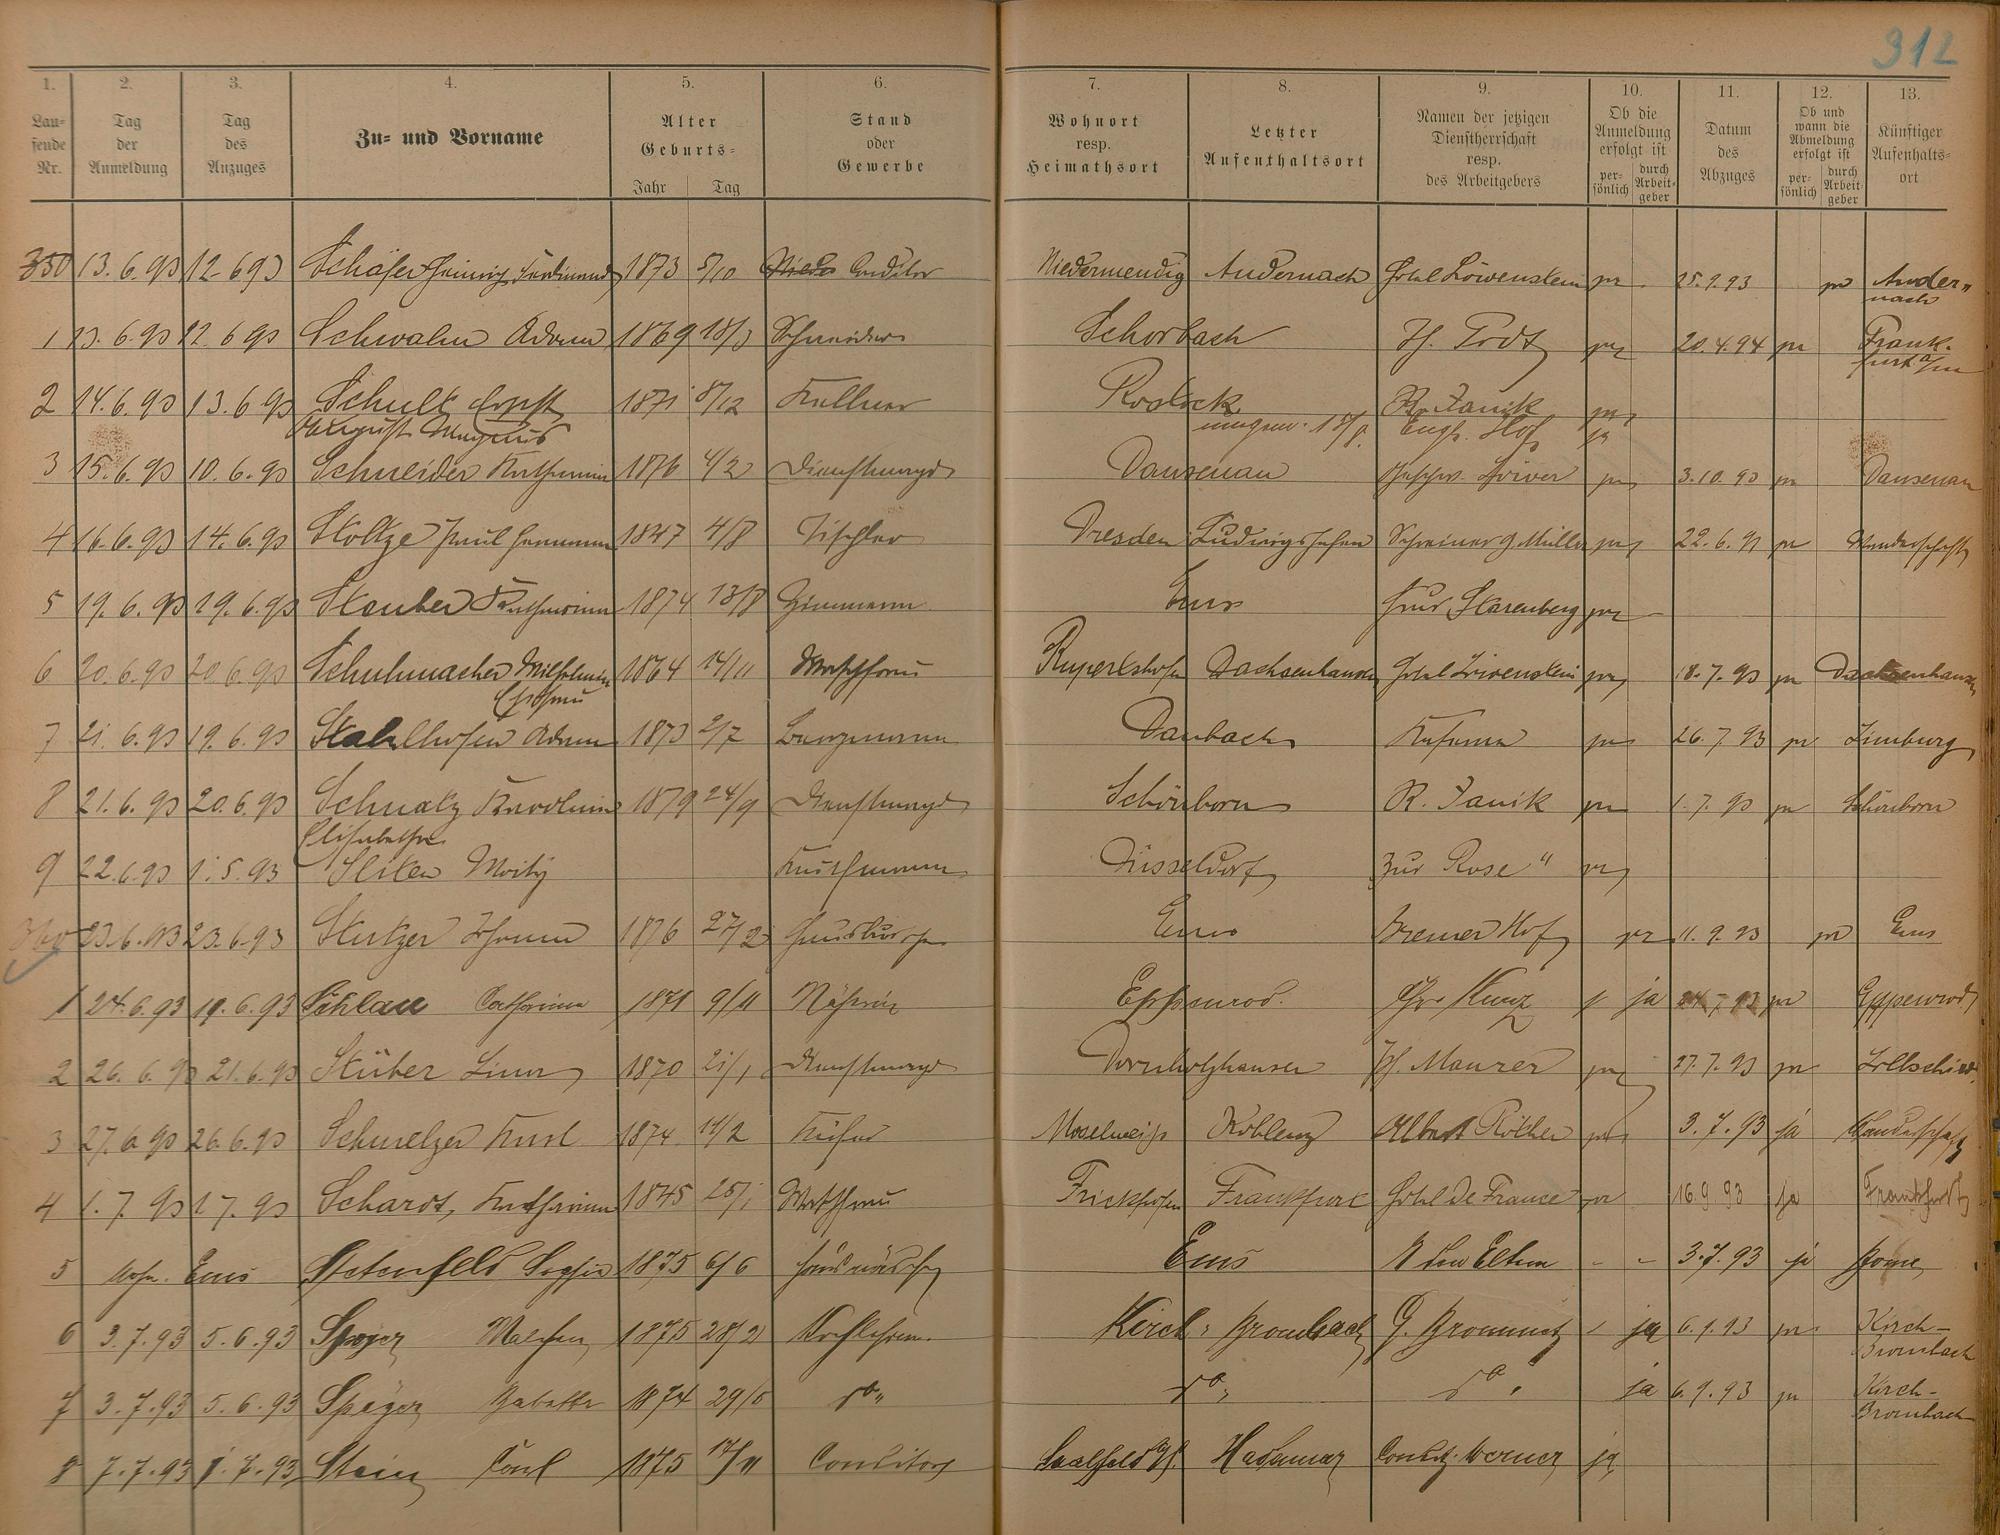 312
1. 2. 3. 4. 5. 6. 7. 8. 9. 10. 11. 12. 13.
Lau-
fende
Nr.
Tag
der
Anmeldung
Tag
des
Anzuges
Zu- und Vorname
Alter
Geburts-
Jahr Tag
Stand
oder
Gewerbe
Wohnort
resp.
Heimathsort
Letzter
Aufenthaltsort
Namen der jetzigen
Dienstherrschaft
resp.
des Arbeitgebers
Ob die
Anmeldung
erfolgt ist
per-
sönlich
durch
Arbeit-
geber
Datum
des
Abzuges
Ob und
wann die
Abmeldung
erfolgt ist
per-
sönlich
durch
Arbeit-
geber
Künftiger
Aufenhalts-
ort
350 13.6.93 12.6.93 Schäfer Heinrich Ferdinand 1873 5/10 Conditor Niedermendig Andernach Hotel Löwenstein pr 25.9.93 pr Ander-
nach
1 13.6.93 12.6.93 Schwalm Adam 1869 18/3 Schneider Schorbach pr 20.4.94 pr Frank-
furt a/m
2 14.6.93 13.6.93 Schult Ernst 1871 8/12 Kellner Rostock R. Janik pr
August Magnus Engl. Hof ja
3 15.6.93 10.6.93 Schneider Katharina 1876 4/2 Dienstmagd Dausenau pr 3.10.93 pr Dausenau
4 16.6.93 14.6.93 Stoltze Paul Hermann 1847 4/8 Tischler Dresden Ludwigshafen Schreiner G. Müller pr 22.6.93 pr Wanderschaft
5 19.6.93 19.6.93 Stauber Katharina 1874 13/8 Ems Starenberg pr
6 20.6.93 20.6.93 Schuhmacher Wilhelmine 1864 14/11 Waschfrau Rupertshofen Dachsenhausen Hotel Löwenstein pr 18.7.93 pr Dachsenhausen
Ehefrau
7 21.6.93 19.6.93 Stahlhofen Adam 1873 2/7 Bergmann Daubach pr 26.7.93 pr Limburg
8 21.6.93 20.6.93 Schnatz Karoline 1879 24/9 Dienstmagd Schönborn R. Janik pr 1.7.93 pr Schönborn
Elisabetha
9 22.6.93 1.5.93 Moritz Kaufmann Düsseldorf Zur Rose" pr
360 23.6.93 23.6.93 Johann 1876 27/2 Hausbursche Ems Bremer Hof pr 11.9.93 pr Ems
1 24.6.93 19.6.93 Schlau Catharina 1871 9/11 Näherin Eppenrod. Chr Kunz / ja pr Eppenrod
2 26.6.93 21.6.93 Stüber Lina 1870 21/1 Dienstmagd Dornholzhausen Maurer pr 27.7.93 pr
3 27.6.93 26.6.93 Schmelzer Karl 1874 Küfer Moselweiß Koblenz Albert Röther pr 3.7.93 ja Wanderschaft
4 1.7.93 1.7.93 Schardt, Katharina 1845 25/1 Waschfrau Frickhofen Frankfurt Hotel De France pr 16.9.93 ja Frankfurt
5 Ems Sophie 1875 6/6 Ems - - 3.7.93 ja
6 3.7.93 5.6.93 Malchen 1875 28/2 Kirch- Brombach G. / ja 6.9.93 pr. Kirch-
Brombach
7 3.7.93 5.6.93 Babette 1874 29/5 do" do" do" ja 6.9.93 pr Kirch-
Brombach
8 7.7.93 1.7.93 Stein Carl 1875 17/11 Conditor Saalfeld Hadamar Condit. Werner ja